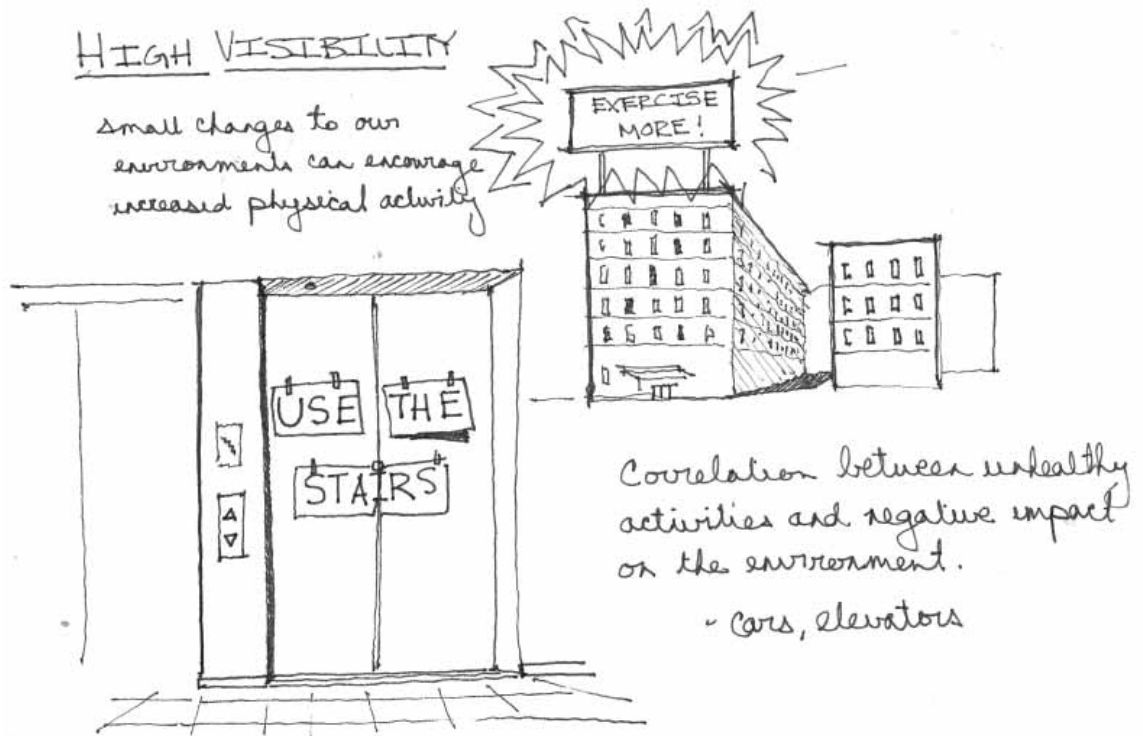 HIGH VISIBILITY
small changes to our
environments can encourage
increased physical activity
EXERCISE
MORE!
USE THE
STAIRS
Correlation between unhealthy
activities and negative impact
on the environment.
- cars, elevators